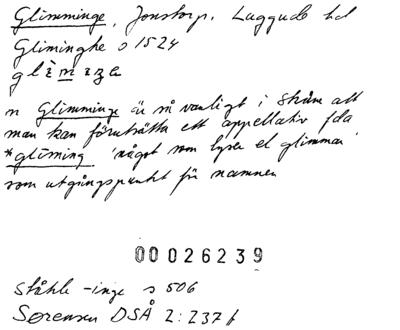 Glimminge, Jonstorp, Luggude hd
Gliminghe o 1524
glìmìŋe
n Glimminge är så vanligt i Skåne att
man kan förutsätta ett appellativ fda
*glīming 'något som lyser el glimmar'
som utgångspunkt för namnen
00026239
Ståhle -inge s 506
Sørensen DSÅ 2:237 f